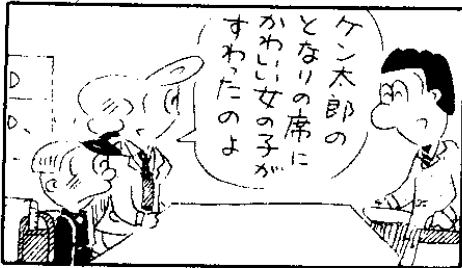 ケン太郎の
となりの席に
かわいい女の子が
すわったのよ